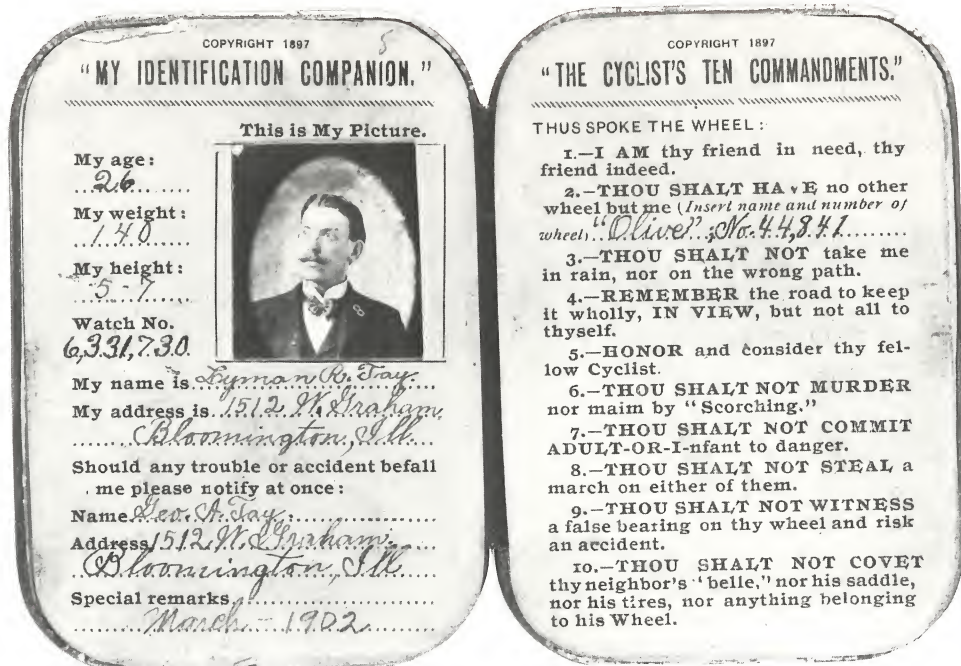 COPYRIGHT 1897
5
"MY IDENTIFICATION COMPANION."
This is My Picture.
My age:
26
My weight:
140
My height:
5-7
Watch No.
6,331,730.
My name is Lyman R. Tay.
My address is 1512 W. Graham.
Bloomington, Ill.
Should any trouble or accident befall
me please notify at once:
Name Geo. A. Tay.
Address 1512 W. Graham.
Bloomington, Ill
Special remarks
March - 1902
COPYRIGHT 1897
"THE CYCLIST'S TEN COMMANDMENTS."
THUS SPOKE THE WHEEL:
1.—I AM thy friend in need, thy
friend indeed.
2.—THOU SHALT HAVE no other
wheel but me (Insert name and number of
wheel) "Olive" ; No. 44,841
3.—THOU SHALT NOT take me
in rain, nor on the wrong path.
4.—REMEMBER the road to keep
it wholly, IN VIEW, but not all to
thyself.
5.—HONOR and consider thy fel-
low Cyclist.
6.—THOU SHALT NOT MURDER
nor maim by "Scorching."
7.—THOU SHALT NOT COMMIT
ADULT-OR-I-nfant to danger.
8.—THOU SHALT NOT STEAL a
march on either of them.
9.—THOU SHALT NOT WITNESS
a false bearing on thy wheel and risk
an accident.
10.—THOU SHALT NOT COVET
thy neighbor's "belle," nor his saddle,
nor his tires, nor anything belonging
to his Wheel.